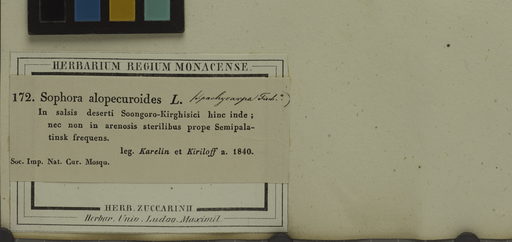 HERBARIUM REGIUM MONACENSE
172. Sophora alopecuroides L. (pachycarpa
In salsis deserti Soongoro-Kirghisici hinc inde ;
nec non in arenosis sterilibus prope Semipala-
tinsk frequens.
leg. Karelin et Kiriloff a. 1840.
Soc. Imp. Nat. Cur. Mosqu.
HERB. ZUCCARINII
Herbar. Univ. Ludov. Maximil.